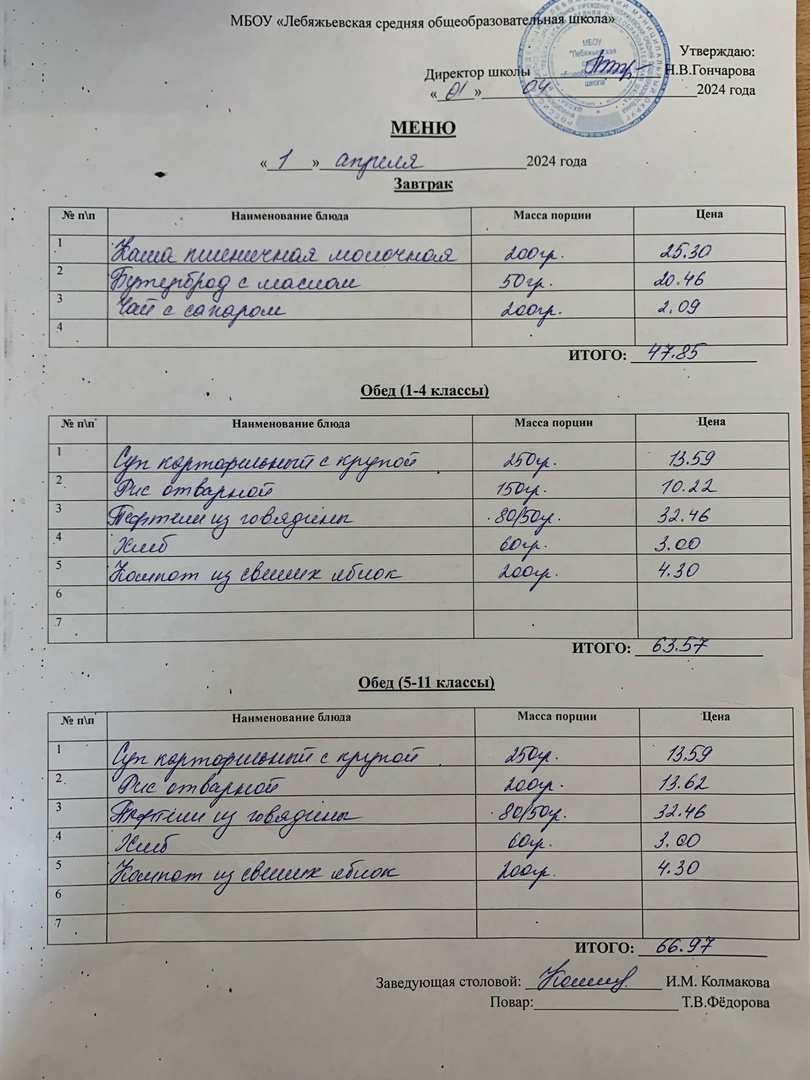 МБОУ «Лебяжьевская средняя общеобразовательная школа»
Утверждаю:
Директор школы Н.В.Гончарова
« 01 » 04 2024 года
МБОУ
"Лебяжьевская
школа"
МЕНЮ
« 1 » апреля 2024 года
Завтрак
№ п\п Наименование блюда Масса порции Цена
1 Каша пшеничная молочная 200гр. 25.30
2 Бутерброд с маслом 50гр. 20.46
3 Чай с сахаром 200гр. 2.09
4
ИТОГО: 47.85
Обед (1-4 классы)
№ п\п Наименование блюда Масса порции Цена
1 Суп картофельный с крупой 250гр. 13.59
2 Рис отварной 150гр. 10.22
3 Тефтели из говядины 80/50гр. 32.46
4 Хлеб 60гр. 3.00
5 Компот из свежих яблок 200гр. 4.30
6
7
ИТОГО: 63.57
Обед (5-11 классы)
№ п\п Наименование блюда Масса порции Цена
1 Суп картофельный с крупой 250гр. 13.59
2 Рис отварной 200гр. 13.62
3 Тефтели из говядины 80/50гр. 32.46
4 Хлеб 60гр. 3.00
5 Компот из свежих яблок 200гр. 4.30
6
7
ИТОГО: 66.97
Заведующая столовой: И.М. Колмакова
Повар: Т.В.Фёдорова